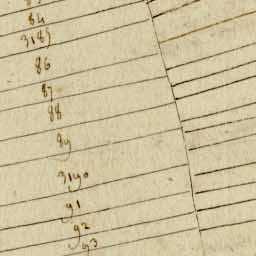 84
3185
86
87
88
89
3190
91
92
93